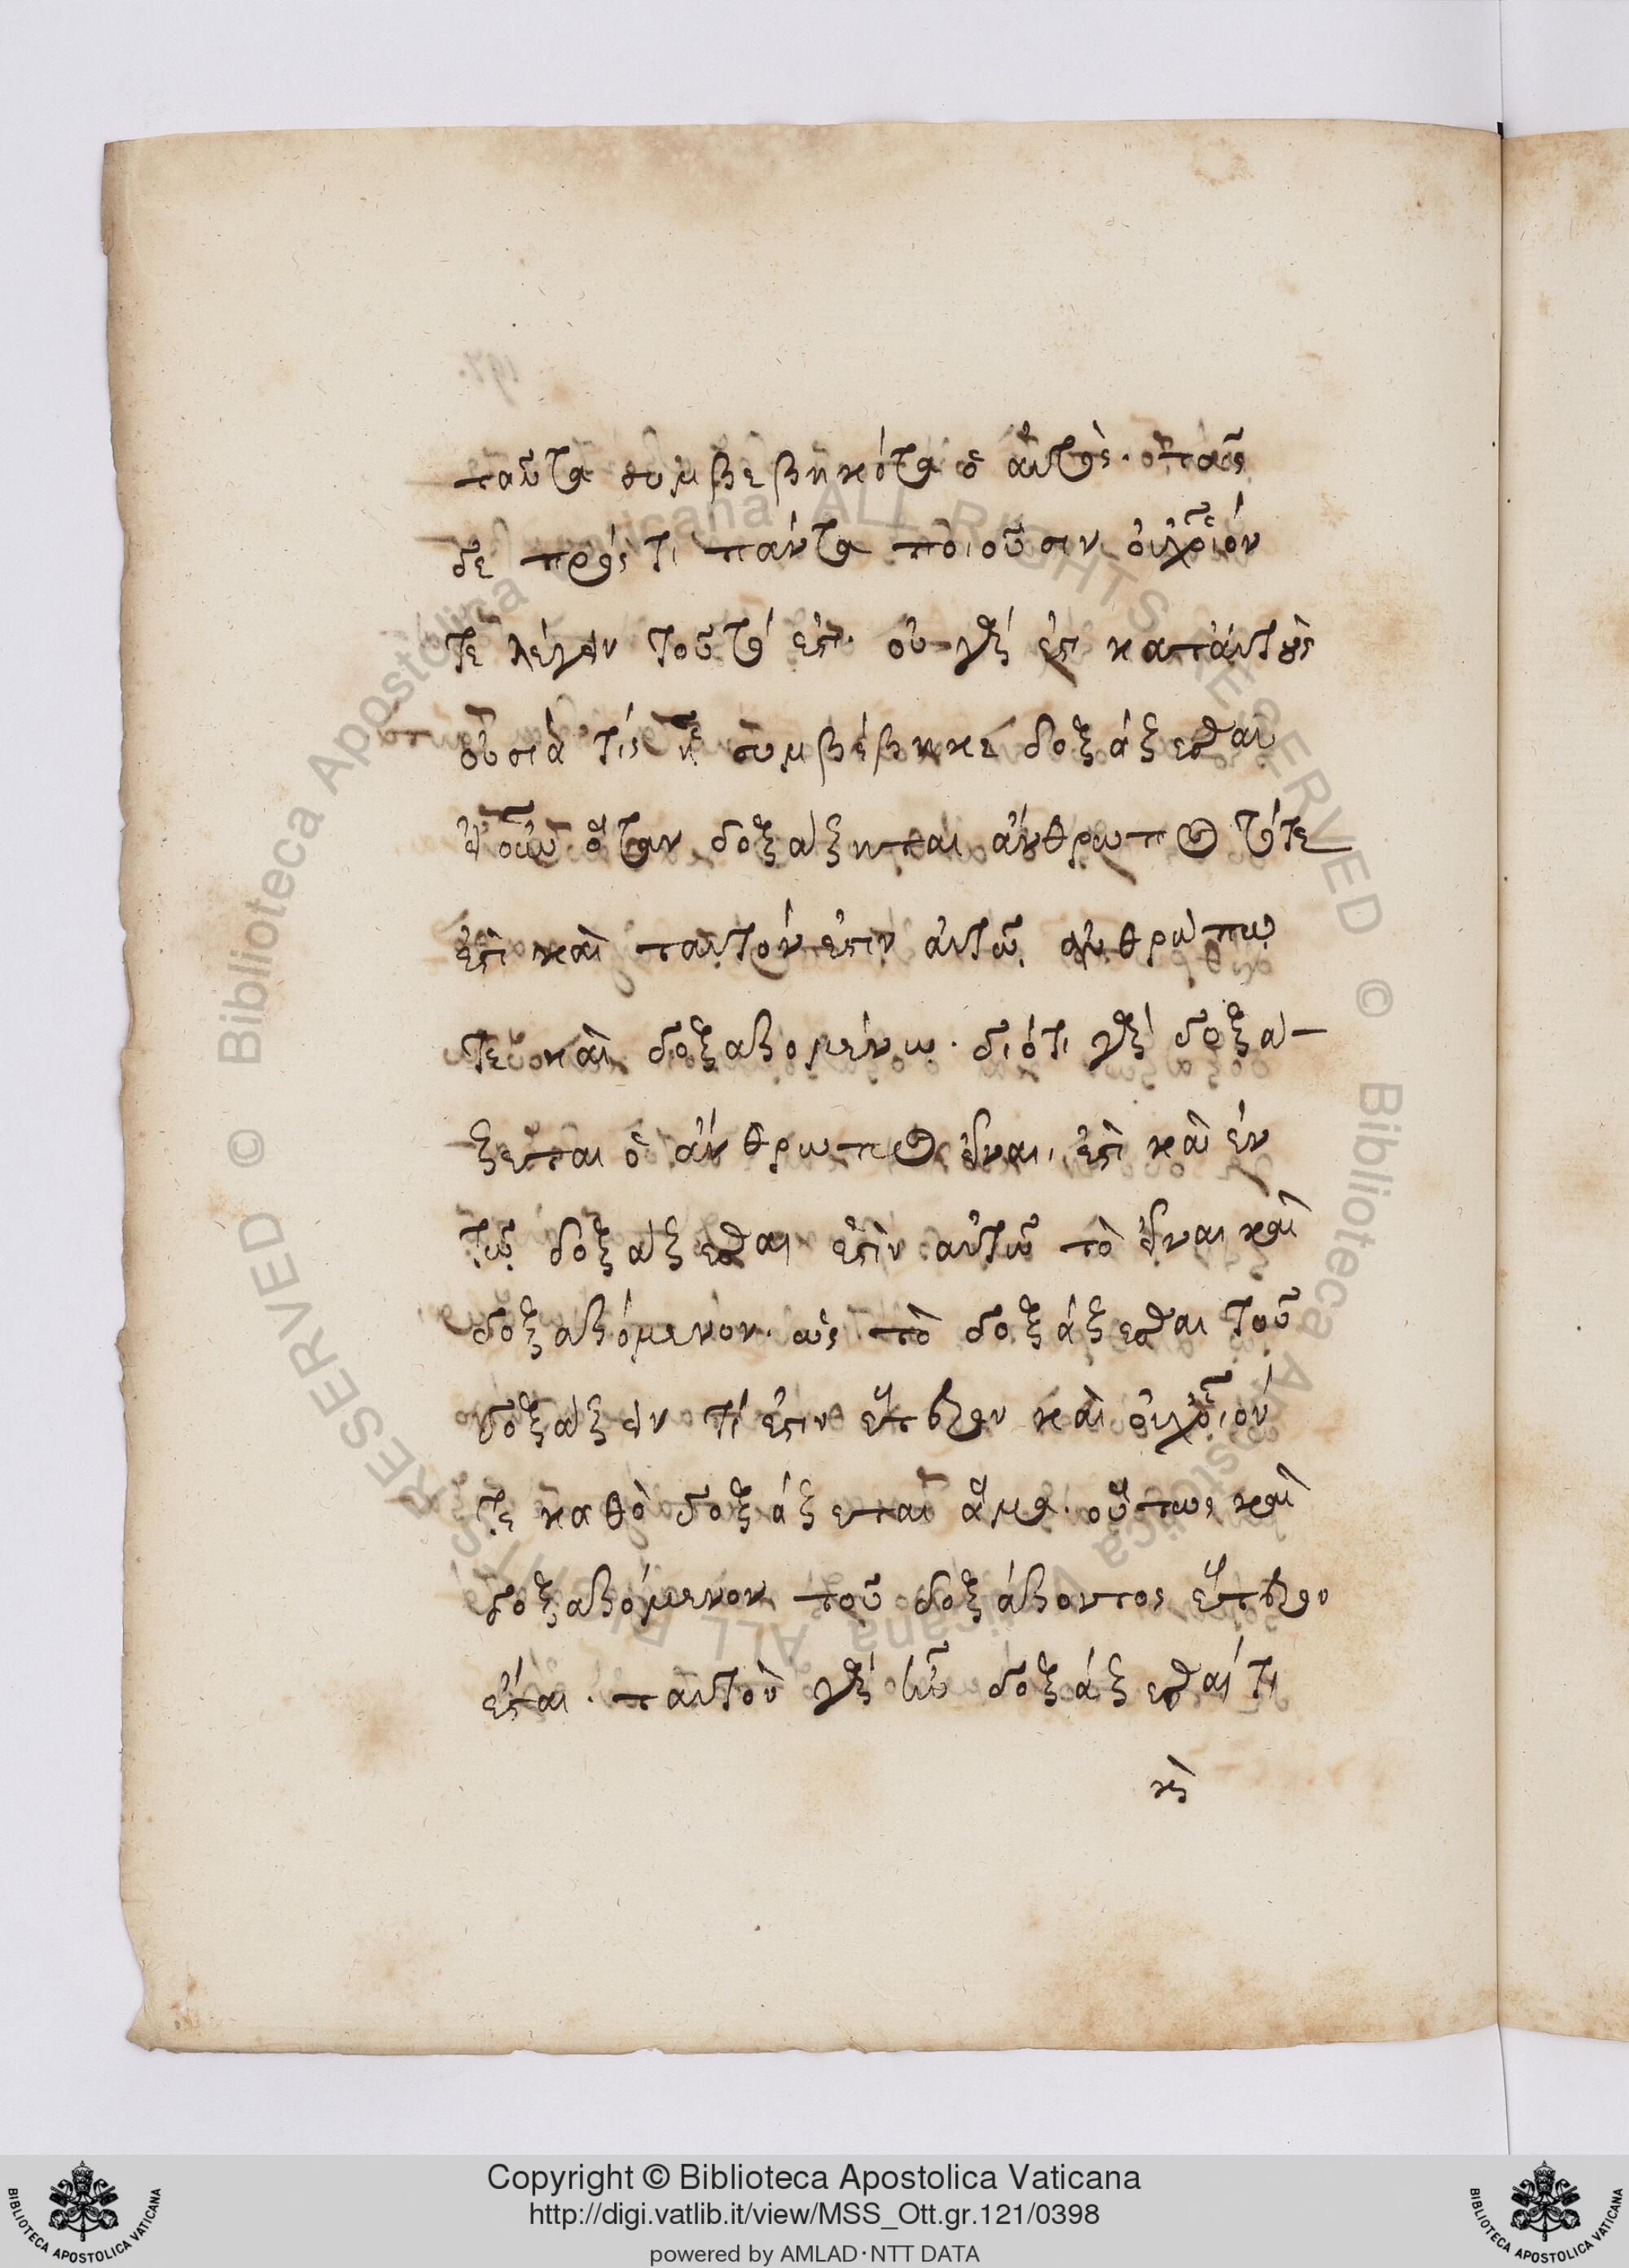 ταῦτα συμβεβηκότα ὁ αὐτὸς·
δὲ πρός τι πάντα ποιοῦσιν οὐχ οἷόν
τε λέγειν τοῦτό ἐστι· οὐ γάρ ἐστι κατ' αὐτοὺς
οὐσία τίς ᾗ συμβέβηκε δοξάζεσθαι
εἰ οὖν ὅταν δοξάζηται ἄνθρωπος τότε
ἐστὶ καὶ ταυτόν ἐστιν αὐτῷ ἀνθρώπῳ
τε καὶ δοξαζομένῳ· διότι γὰρ δοξά-
ζεται ὁ ἄνθρωπος εἶναι, ἐστὶ καὶ ἐν
τῷ δοξάζεσθαι ἐστὶν αὐτῷ τὸ εἶναι καὶ
δοξαζόμενον· ὡς τὸ δοξάζεσθαι τοῦ
δοξάζειν τί ἐστιν ἕτερον καὶ οὐχ οἷόν
τε καθὸ δοξάζεται ἅμα· οὕτως καὶ
δοξαζόμενον τοῦ δοξάζοντος ἕτερον
ἔσται· ταυτὸν γὰρ ἦν δοξάζεσθαί τι
κὶ
Copyright © Biblioteca Apostolica Vaticana
http://digi.vatlib.it/view/MSS_Ott.gr.121/0398
powered by AMLAD·NTT DATA
BIBLIOTECA APOSTOLICA VATICANA
BIBLIOTECA APOSTOLICA VATICANA
© Biblioteca Apostolica Vaticana ALL RIGHTS RESERVED
© Biblioteca Apostolica Vaticana ALL RIGHTS RESERVED